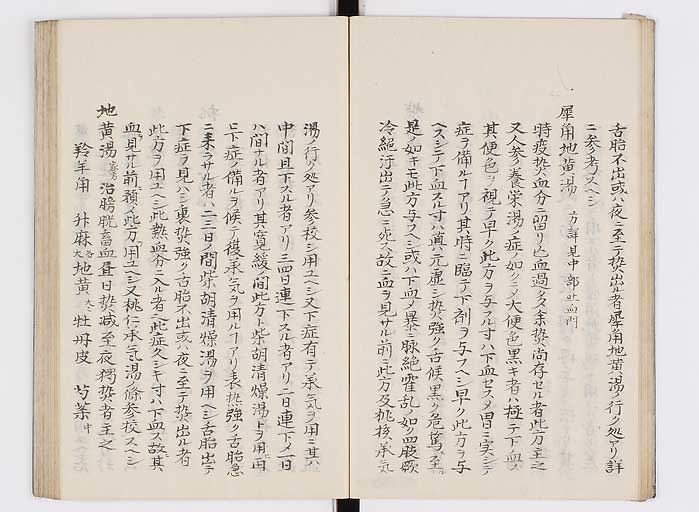 舌胎不出或ハ夜ニ至テ熱出ル者犀角地黄湯ノ行ク処アリ詳
ニ参考スヘシ
犀角地黄湯 方詳見中部吐血門
時疫熱血分ニ留リ血過多余熱尚存セル者此方主之
又人参養栄湯ノ症ノ如クニテ大便色黒キ者ハ極テ下血ス
其便色ヲ視テ早ク此方ヲ与フル寸ハ下血セスメ
症ヲ備ルアリ其時ニ臨テ下剤ヲ与フヘシ早ク此方ヲ与
ヘスシテ下血スル寸ハ真ノ元虚シ熱強ク舌候黒ク危篤ニ至ル
是ノ如キモ此方与フヘシ或ハ下血メ暴ニ脉絶霍乱ノ如ク四肢厥
冷絶汗出テ急ニ死ス故ニ血ヲ見サル前ニ此方及桃核承気
湯ノ行ク処アリ参校シ用ユヘシ又下症有テ承気ヲ用ニ其ハ
中間且下スル者アリ三四日連下スル者アリ二日連下メ一日
ハ間サル者アリ其寛緩ノ間此方ト柴胡清燥湯トヲ用再
ヒ下症ノ備ルヲ候テ復承気ヲ用ルアリ表熱強ク舌胎急
ニ去ラサル者ハ二三日ノ間柴胡清燥湯ヲ用ヘシ舌胎出テ
下症ヲ見ハシ裏熱強ク舌胎不出或ハ夜ニ至テ熱出ル者
此方ヲ用ユヘシ此熱血分ニ入ル者ヘ此症久シキ寸ハ下血ス故其
血見サル前預メ此方用ユヘシ又桃仁承気湯ノ條参校スヘシ
地黄湯 治膀胱畜血昼日熱减至夜獨熱者主之
羚羊角 升麻 各大 地黄 大 牡丹皮 芍薬 中